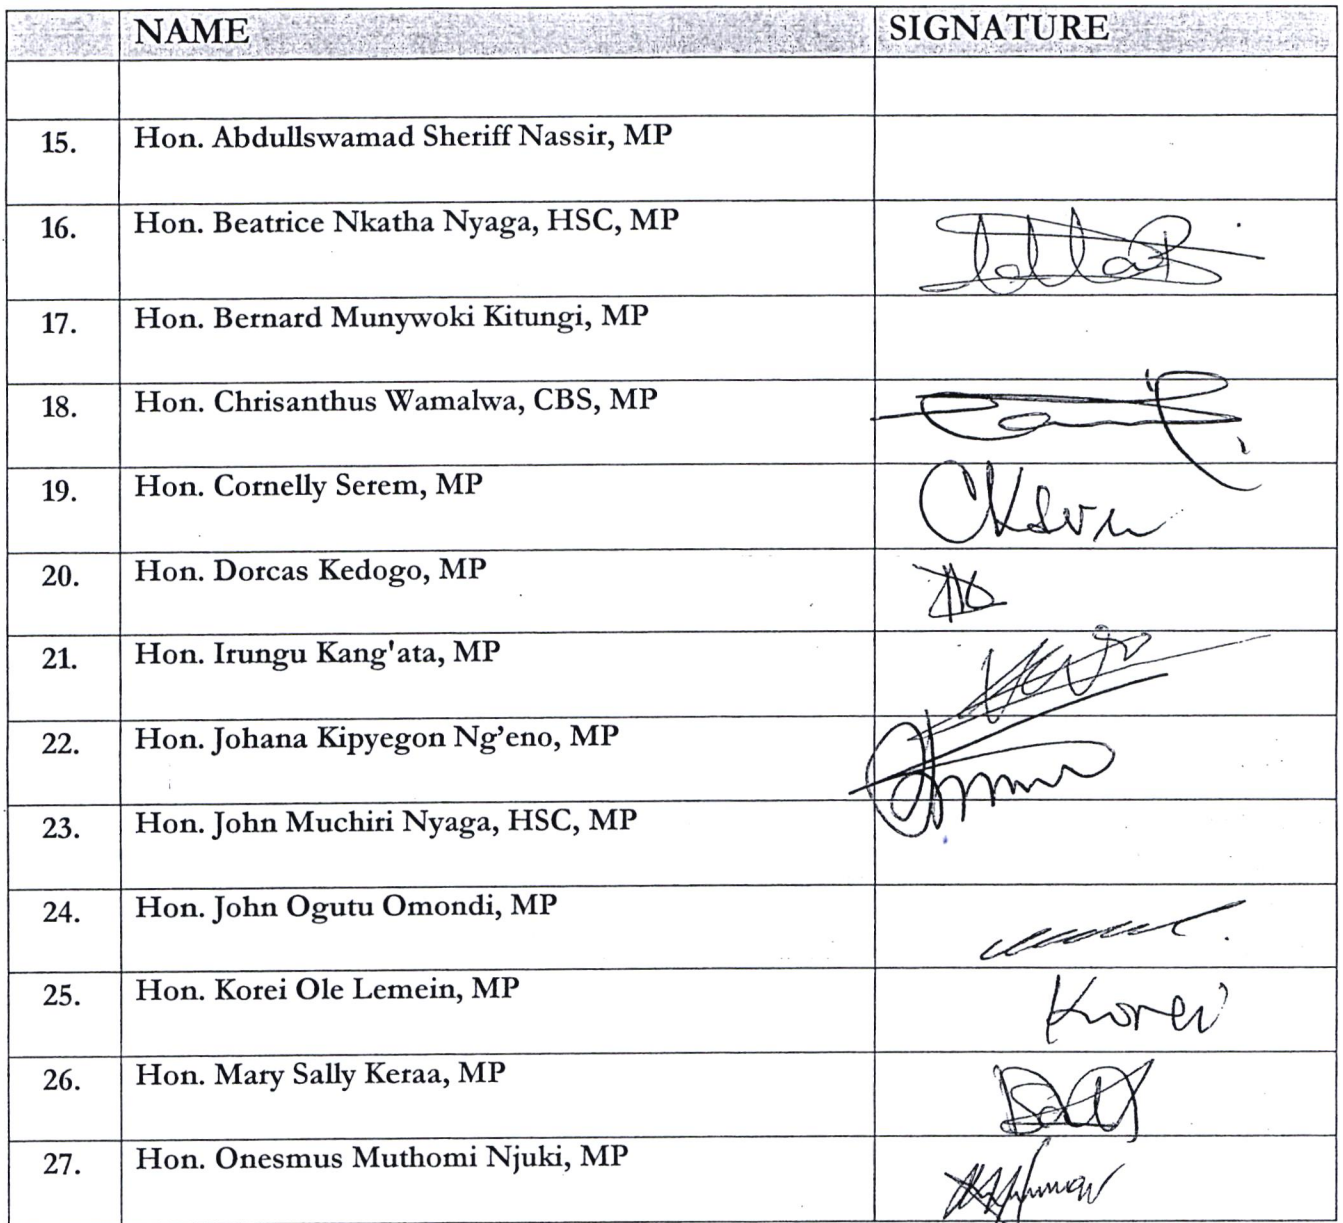 NAME SIGNATURE
15. Hon. Abdullswamad Sheriff Nassir, MP
16. Hon. Beatrice Nkatha Nyaga, HSC, MP
17. Hon. Bernard Munywoki Kitungi, MP
18. Hon. Chrisanthus Wamalwa, CBS, MP
19. Hon. Cornelly Serem, MP
20. Hon. Dorcas Kedogo, MP
21. Hon. Irungu Kang'ata, MP
22. Hon. Johana Kipyegon Ng’eno, MP
23. Hon. John Muchiri Nyaga, HSC, MP
24. Hon. John Ogutu Omondi, MP
25. Hon. Korei Ole Lemein, MP Korei
26. Hon. Mary Sally Keraa, MP
27. Hon. Onesmus Muthomi Njuki, MP